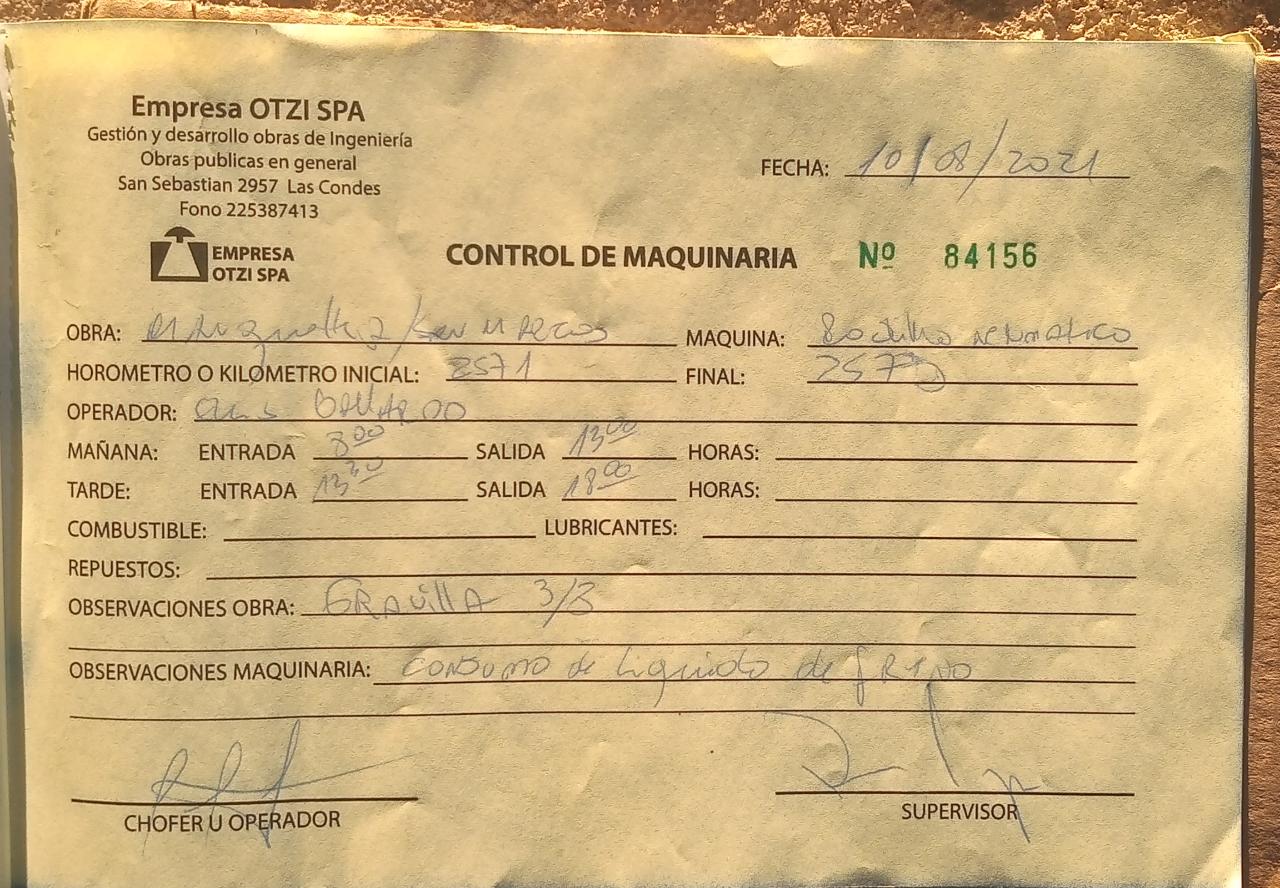 Empresa OTZI SPA
Gestión y desarrollo obras de Ingeniería
Obras publicas en general
San Sebastian 2957 Las Condes
Fono 225387413
FECHA: 10/08/2021
EMPRESA
OTZI SPA
CONTROL DE MAQUINARIA Nº 84156
OBRA:
MAQUINA: Rodillo neumatico
HOROMETRO O KILOMETRO INICIAL: 2571
FINAL:
OPERADOR: GALLARDO
MAÑANA: ENTRADA 8:00 SALIDA 13:00 HORAS:
TARDE: ENTRADA SALIDA 18:00 HORAS:
COMBUSTIBLE: LUBRICANTES:
REPUESTOS:
OBSERVACIONES OBRA: GRAVILLA 3/8
OBSERVACIONES MAQUINARIA: CONSUMO de Liquido de fRENO
CHOFER U OPERADOR
SUPERVISOR